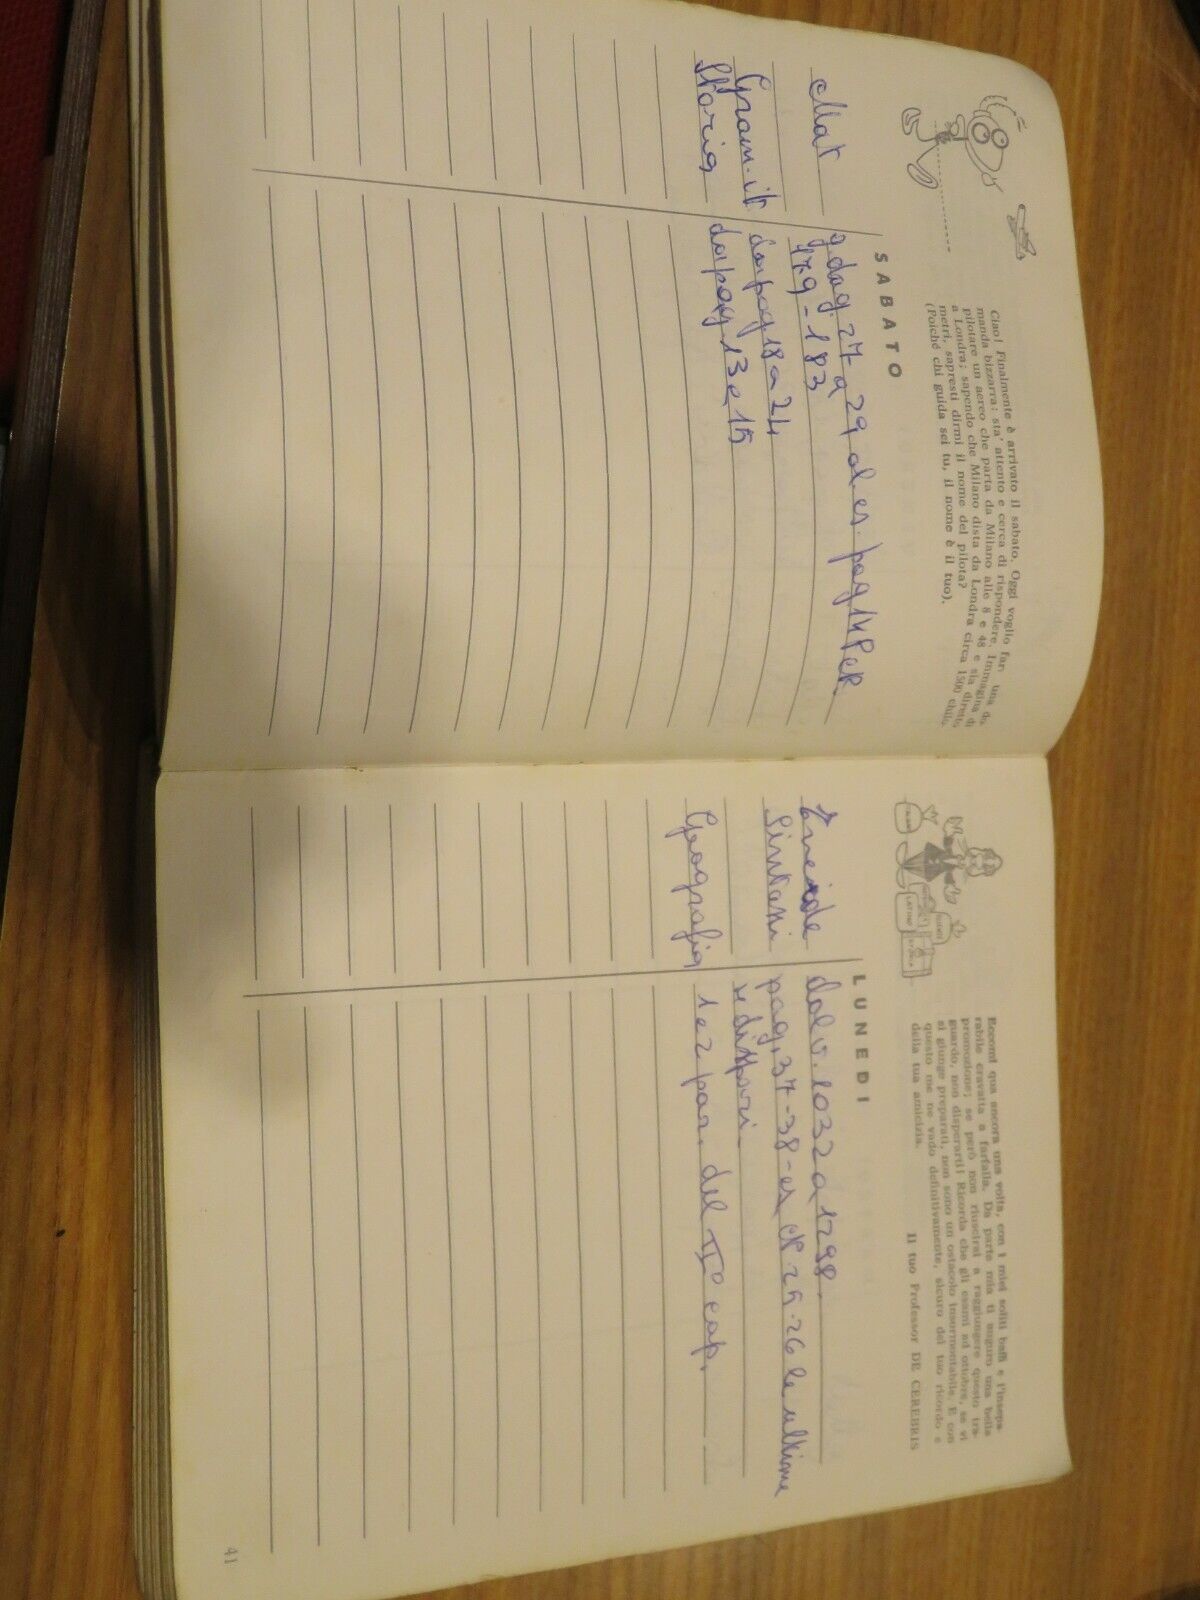 Ciao! Finalmente è arrivato il sabato. Oggi voglio far una do-
manda bizzarra: sta' attento e cerca di rispondere. Immagina di
pilotare un aereo che parta da Milano alle 8 e 48 e sia diretto
a Londra; sapendo che Milano dista da Londra circa 1500 chilo-
metri, sapresti dirmi il nome del pilota?
(Poiché chi guida sei tu, il nome è il tuo).
SABATO
Mat
da g. 27 a 29 al es. pag 14 PER.
179-183
Gram. it
da pag 18 a 24
Storia
da pag 13 a 15
Eccomi qua ancora una volta, con i miei soliti baffi e l'insepa-
rabile cravatta a farfalla. Da parte mia ti auguro una bella
promozione; se però non riuscirai a raggiungere questo tra-
guardo, non disperarti! Ricorda che gli esami ad ottobre, se vi
si giunge preparati, non sono un ostacolo insormontabile. E con
questo me ne vado definitivamente, sicuro del tuo ricordo e
della tua amicizia.
Il tuo Professor DE CEREBRIS
LATINO
LUNEDI
Eneide
dal v. 1032 a 1298.
Sintassi
pag. 37-38- es 25-26 le ultime
e dispari.
Geografia
1 e 2 par. del II° cap.
41